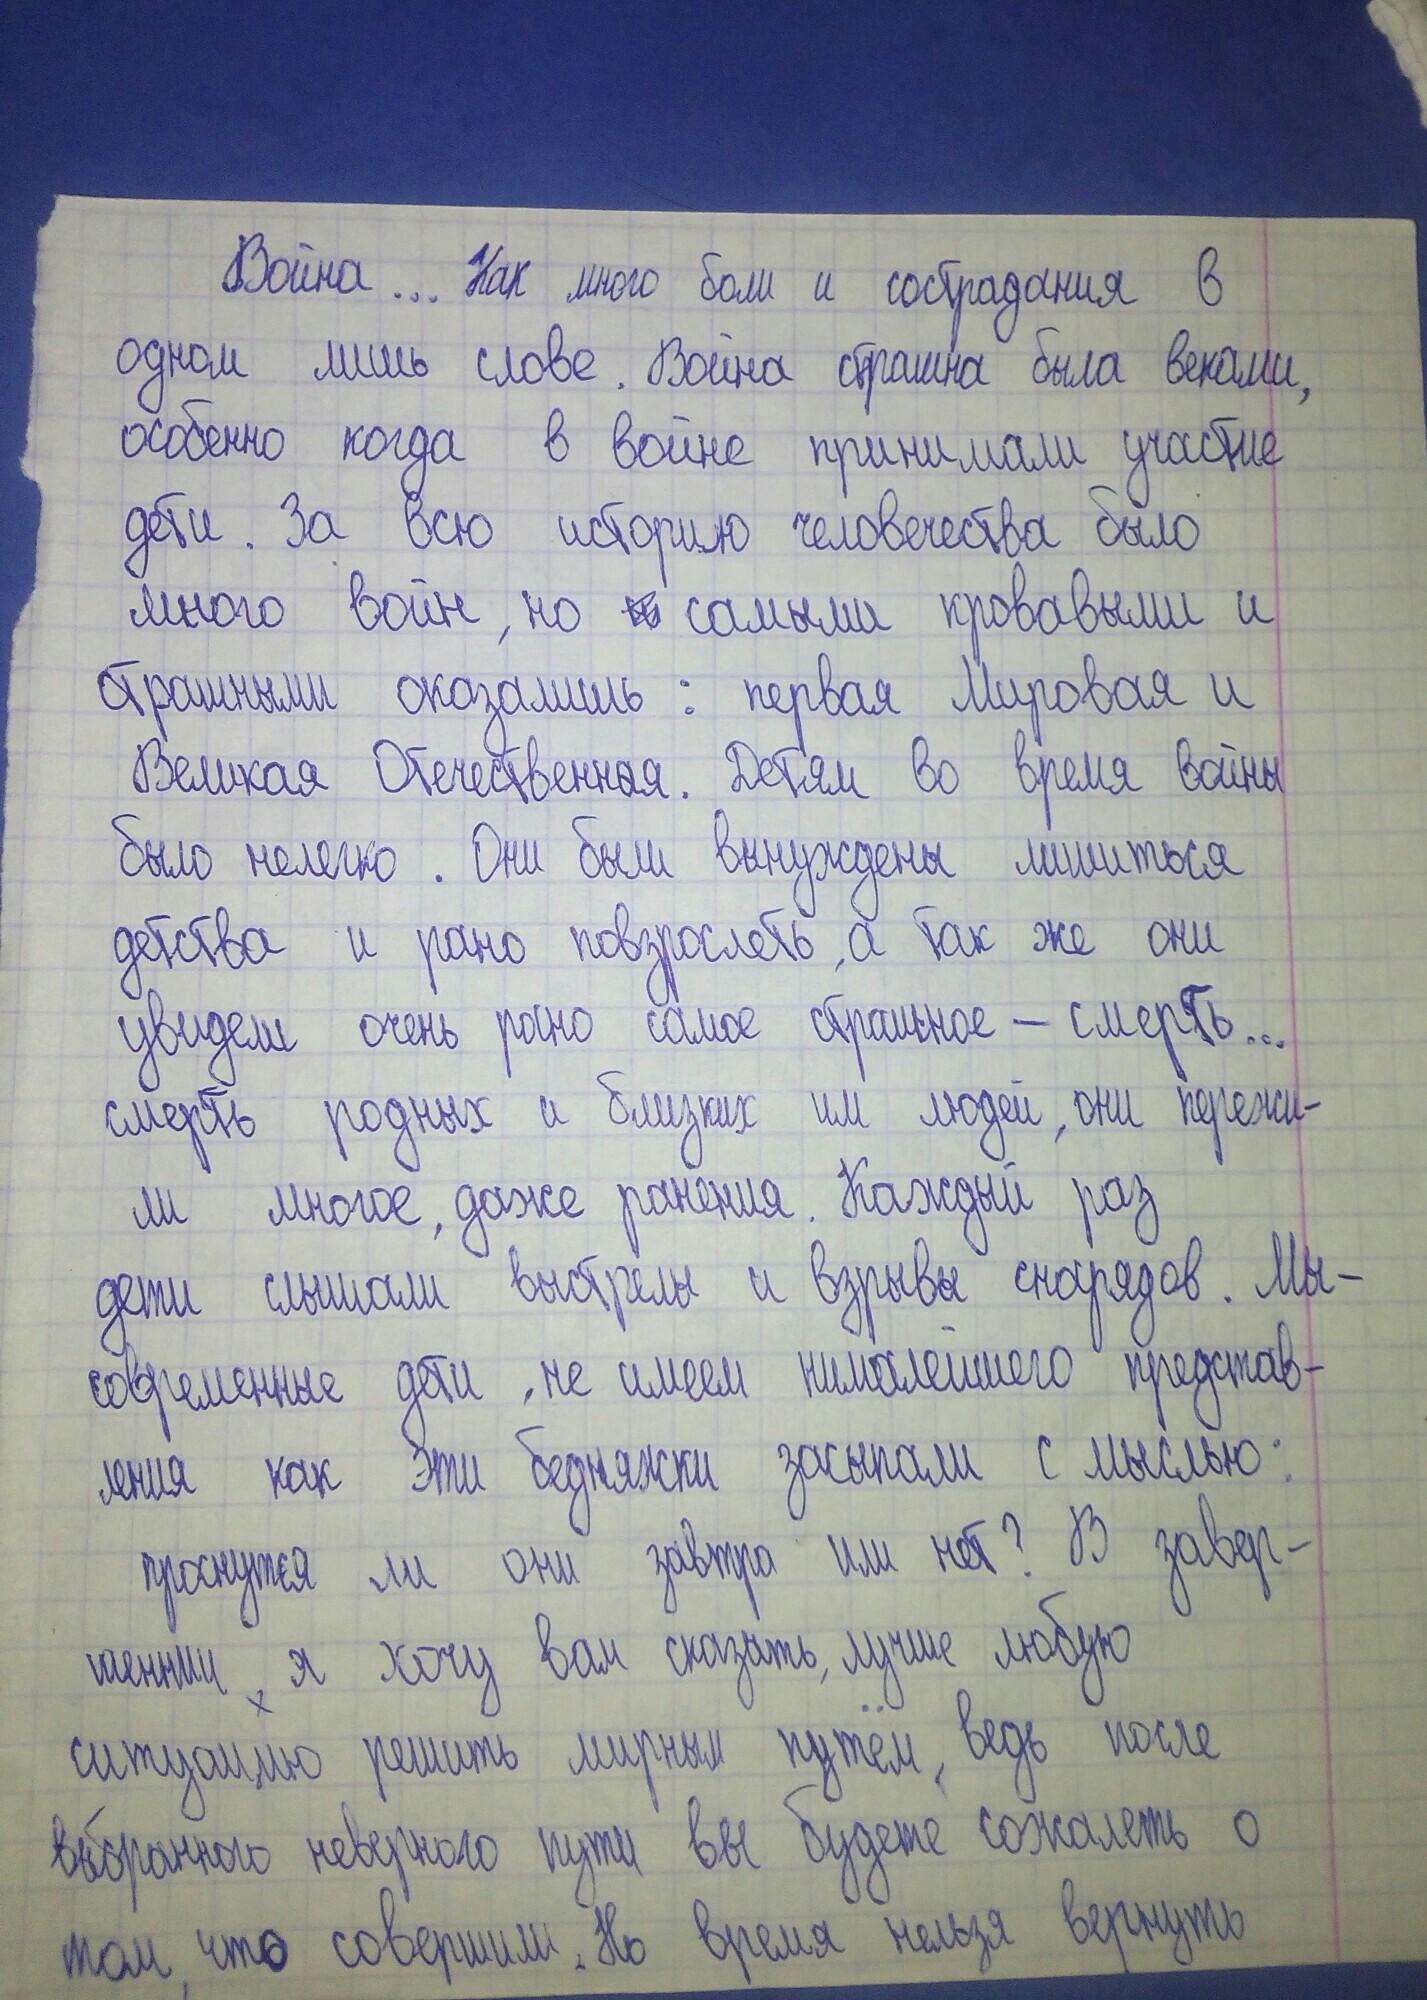 Война... Как много боли и сострадания в
одном лишь слове. Война страшна была веками,
особенно когда в войне принимали участие
дети. За всю историю человечества было
много войн, но самыми кровавыми и
страшными оказались: первая Мировая и
Великая Отечественная. Детям во время войны
было нелегко. Они были вынуждены лишиться
детства и рано повзрослеть, а так же они
увидели очень рано самое страшное — смерть...
смерть родных и близких им людей, они пережи-
ли многое, даже ранения. Каждый раз
дети слышали выстрелы и взрывы снарядов. Мы-
современные дети, не имеем нималейшего представ-
ления как эти бедняжки засыпали с мыслью:
проснутся ли они завтра или нет? В завер-
шении, я хочу вам сказать, лучше любую
ситуацию решить мирным путём, ведь после
выбранного неверного пути вы будете сожалеть о
том, что совершили. Но время нельзя вернуть